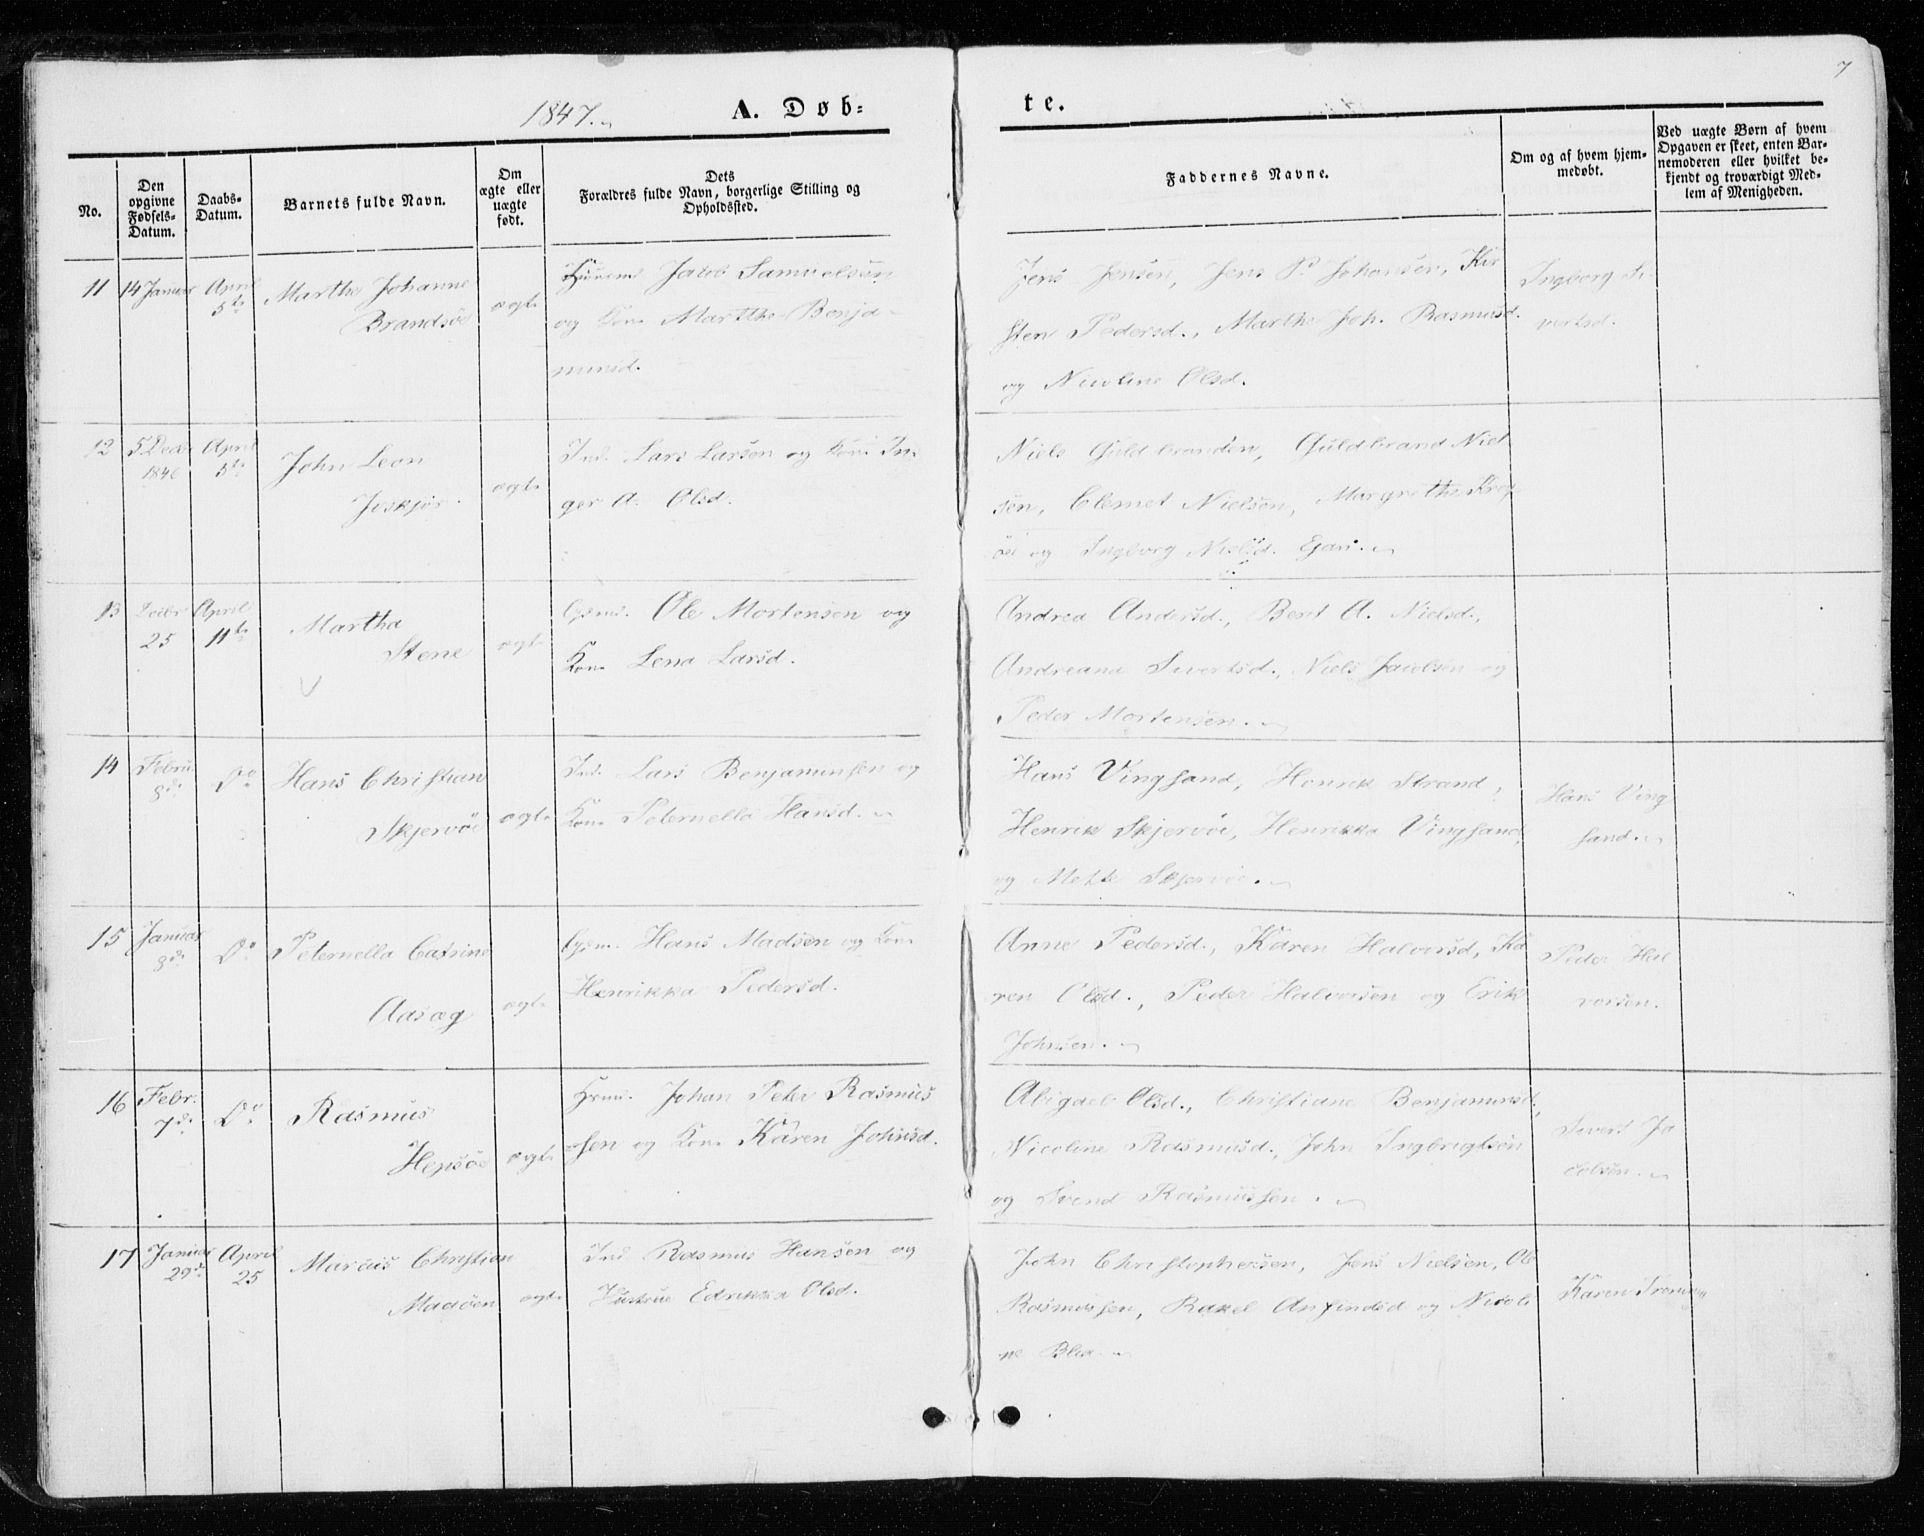 7
1847.
A. Døb=
te.
No.
Den opgivne Fødsels-Datum.
Daabs-Datum.
Barnets fulde Navn.
Om ægte eller uægte født.
Dets Forældres fulde Navn, borgerlige Stilling og Opholdssted.
Faddernes Navne.
Om og af hvem hjemmedøbt.
Ved uægte Børn af hvem Opgaven er skeet, enten Barnemoderen eller hvilket bekjendt og troværdigt Medlem af Menigheden.
11 14 Januar April 5te Marthe Johanne Brandsöe ægte
Huusmd. Jacob Samuelsen
og Kone Marthe Benja-
minsd.
Jens Jensen, Jens P. Johansen, Kir
sten Pedersd., Marthe Joh. Rasmusd.
og Nicoline Olsd.
Ingborg Si-
vertsd.
12 5 Decbr 1846 April 5te John Leon Joskjør ægte
Ind. Lars Larsen og Kone In-
ger A. Olsd.
Niels Guldbrandsen, Guldbrand Niel
sen, Clemet Nielsen, Margrethe
og Ingborg Nielsd.
13 Decbr 25 April 11te Martha Stene ægte
Gdmd. Ole Mortensen og
Kone Lena Larsd.
Andrea Andersd., Berit A. Nielsd.,
Andreana Sivertsd., Niels Jacobsen og
Peder Mortensen.
14 Febru. 8de Do Hans Christian Skjervöe ægte
Ind. Lars Benjaminsen og
Kone Peternella Hansd.
Hans Vingsand, Henrik Strand,
Henrik Skjervöe, Henrikka Vingsand,
og Mette Skjervöe.
Hans Ving
sand.
15 Januar 8de Do Peternella Catrine Aasæg ægte
Gdmd. Hans Madsen og Kone
Henrikka Pedersd.
Anne Pedersd., Karen Halvorsd., Ka
ren Olsd., Peder Halvorsen og Erik
Johnsen.
Peder Hal
vorsen.
16 Febr. 7de Do Rasmus Hepsöe ægte
Hsmd. Johan Peter Rasmus
sen og Kone Karen Johnsd.
Abigael Olsd., Christiane Benjaminsd.,
Nicoline Rasmusd., John Ingbrigtsen
og Svend Rasmussen.
Sivert Ja
cobsen.
17 Januar 29de April 25 Marcus Christian Madöen ægte
Ind. Rasmus Hansen og
Hustrue Edrikka Olsd.
John Christophersen, Jens Nielsen, Ole
Rasmussen, Rakel Anfindsd og Nicoli
ne Blix.
Karen